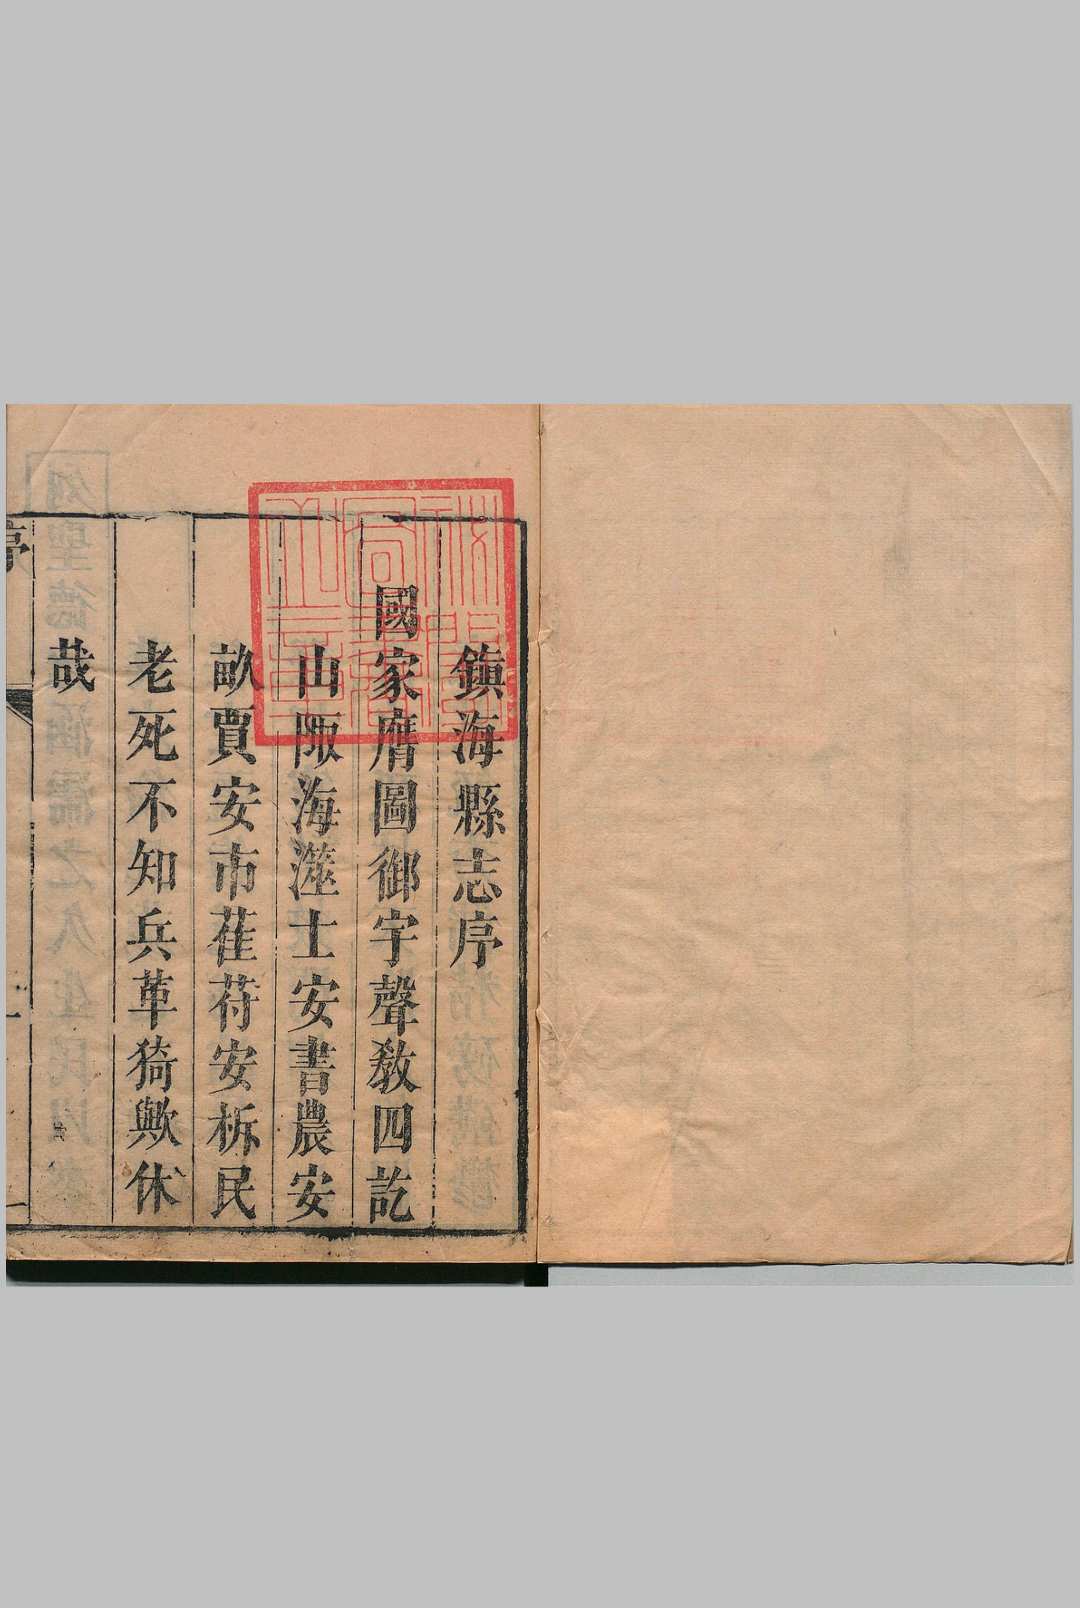 鎮海縣志序
國家膺圖御宇聲敎四訖
山陬海澨士安書農安
畝賈安市萑苻安柝民
老死不知兵革猗歟休
哉
序
一